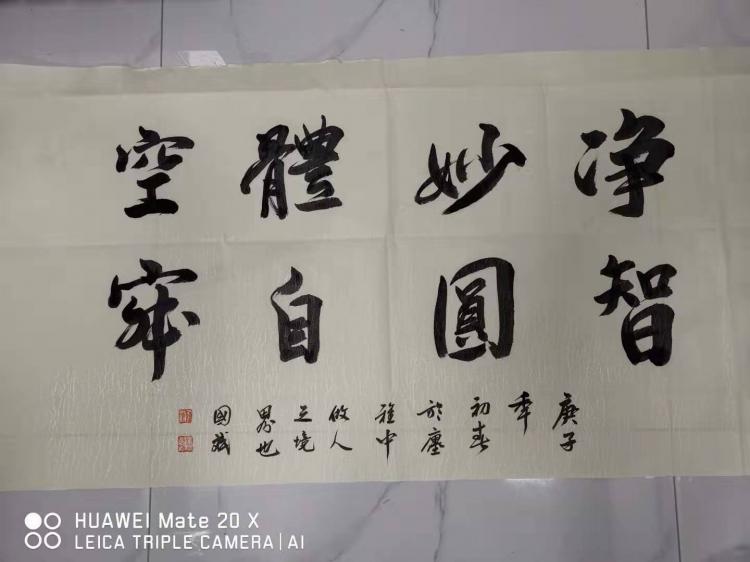 净智
妙圓
體自
空寂
庚子
年
初春
於塵
雅中
做人
之境
界也
國斌
HUAWEI Mate 20 X
LEICA TRIPLE CAMERA | AI